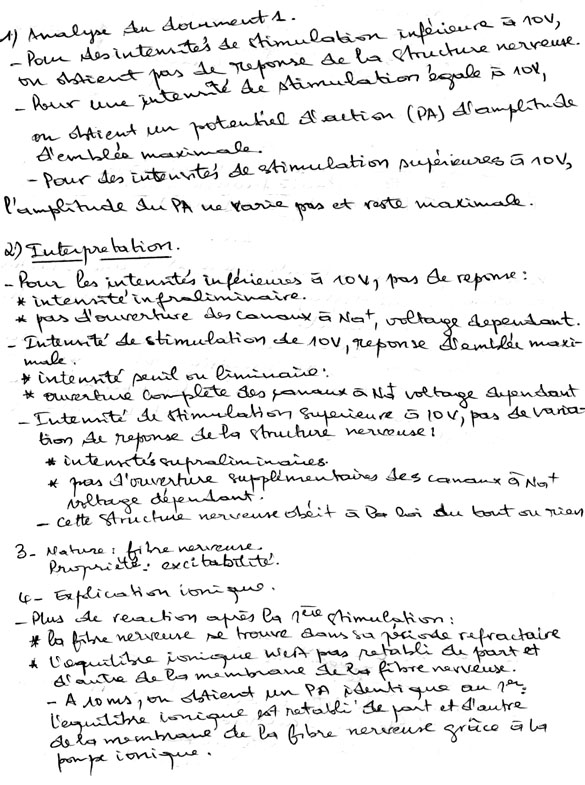 1) Analyse du document 1.
- Pour des intensités de stimulation inférieure à 10V,
on obtient pas de reponse de la structure nerveuse.
- Pour une intensité de stimulation égale à 10V,
on obtient un potentiel d'action (PA) d'amplitude
d'emblée maximale.
- Pour des intensités de stimulation supérieures à 10V,
l'amplitude du PA ne varie pas et reste maximale.
2) Interpretation.
- Pour les intensités inférieures à 10V, pas de reponse :
* intensité infraliminaire.
* pas d'ouverture des canaux à Na+, voltage dependant.
- Intensité de stimulation de 10V, reponse d'emblée maxi-
male.
* intensité seuil ou liminaire :
* ouverture complète des canaux à Na+ voltage dependant
- Intensité de stimulation superieure à 10V, pas de varia-
tion de reponse de la structure nerveuse :
* intensités supraliminaires.
* pas d'ouverture supplémentaires des canaux à Na+
voltage dépendant.
- cette structure nerveuse obéit à la loi du tout ou rien
3- Nature : fibre nerveuse.
Propriété : excitabilité.
4- Explication ionique.
- Plus de reaction après la 1ère stimulation :
* la fibre nerveuse se trouve dans sa période refractaire
* l'equilibre ionique n'est pas retabli de part et
d'autre de la membrane de la fibre nerveuse.
- A 10ms, on obtient un PA identique au 1er :
l'equilibre ionique est retabli de part et d'autre
de la membrane de la fibre nerveuse grâce à la
pompe ionique.